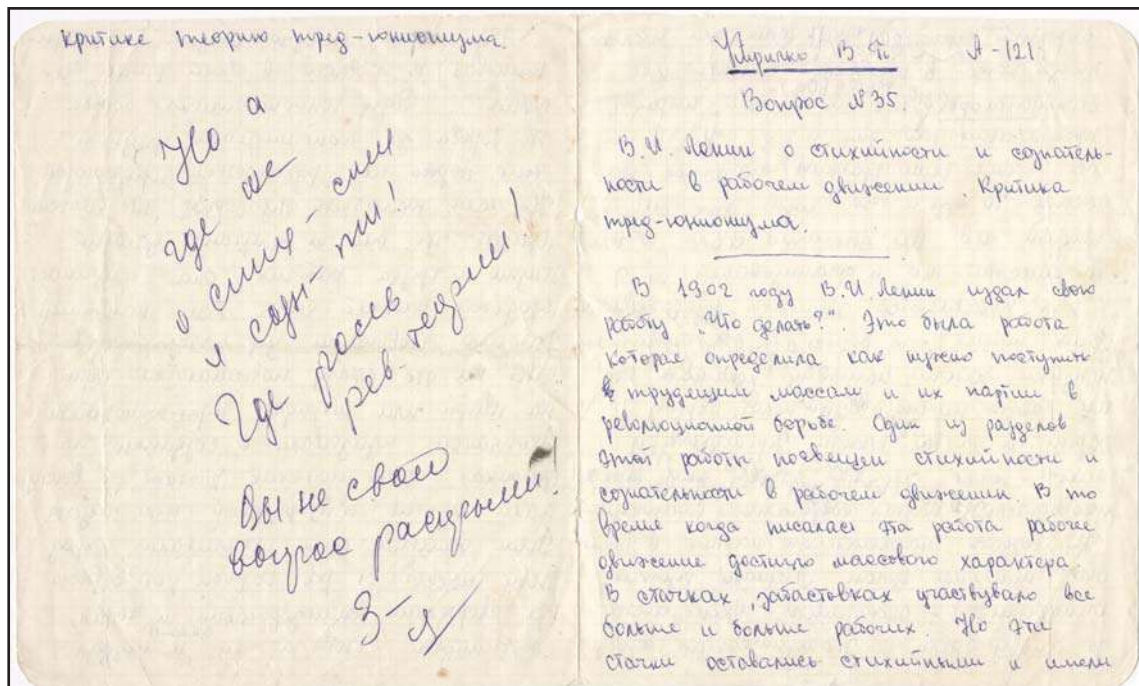 критике теорию тред-юнионизма.
Но а
где же
о стих-сти
и созн-ти!
Где рос-ев
рев теории!
Вы не свой
вопрос раскрыли.
3-
В П. А-121.
Вопрос №35.
В.И. Ленин о стихийности и сознатель-
ности в рабочем движении. Критика
тред-юнионизма.
В 1902 году В.И Ленин издал свою
работу „Что делать?“. Это была работа
которая определила как нужно поступить
трудящим массам и их партии в
революционной борьбе. Один из разделов
этой работы посвящен стихийности и
сознательности в рабочем движении. В то
время когда писалась эта работа рабочее
движение достигло массового характера.
В стачках, забастовках участвувало все
больше и больше рабочих. Но эти
стачки оставались стихийными и имели